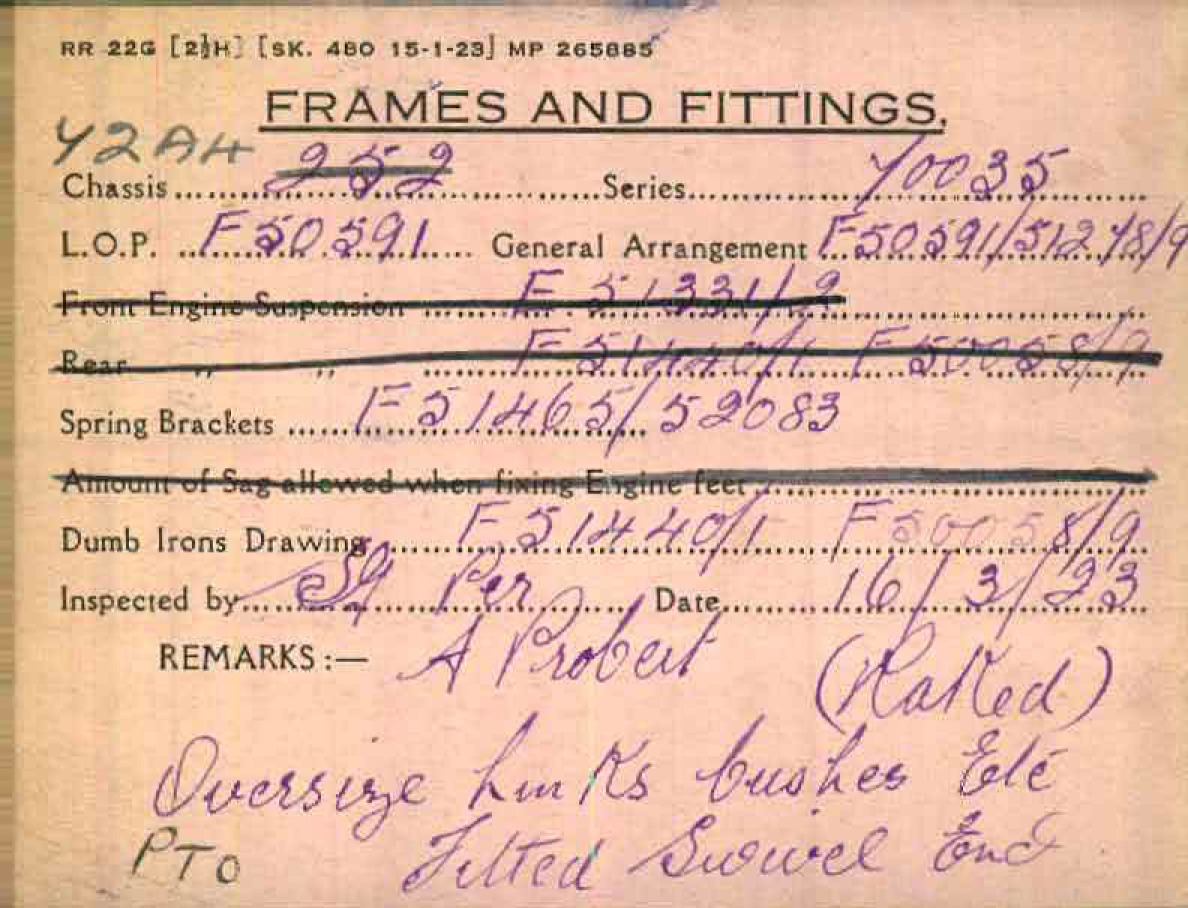 RR 22G [2½H] [SK. 480 15-1-23] MP 265885
FRAMES AND FITTINGS.
42AH
Chassis 252 Series Y0035
L.O.P. F50591 General Arrangement F50591/51248/9
Front Engine Suspension F 51331/2
Rear " " F51440/1 F50058/9
Spring Brackets F51465/52083
Amount of Sag allowed when fixing Engine feet
Dumb Irons Drawing F51440/1 F50058/9
Inspected by Per Date 16/3/23
REMARKS:— A Probert
(Raked)
Oversize Links bushes Etc
PTO Fitted Swivel End